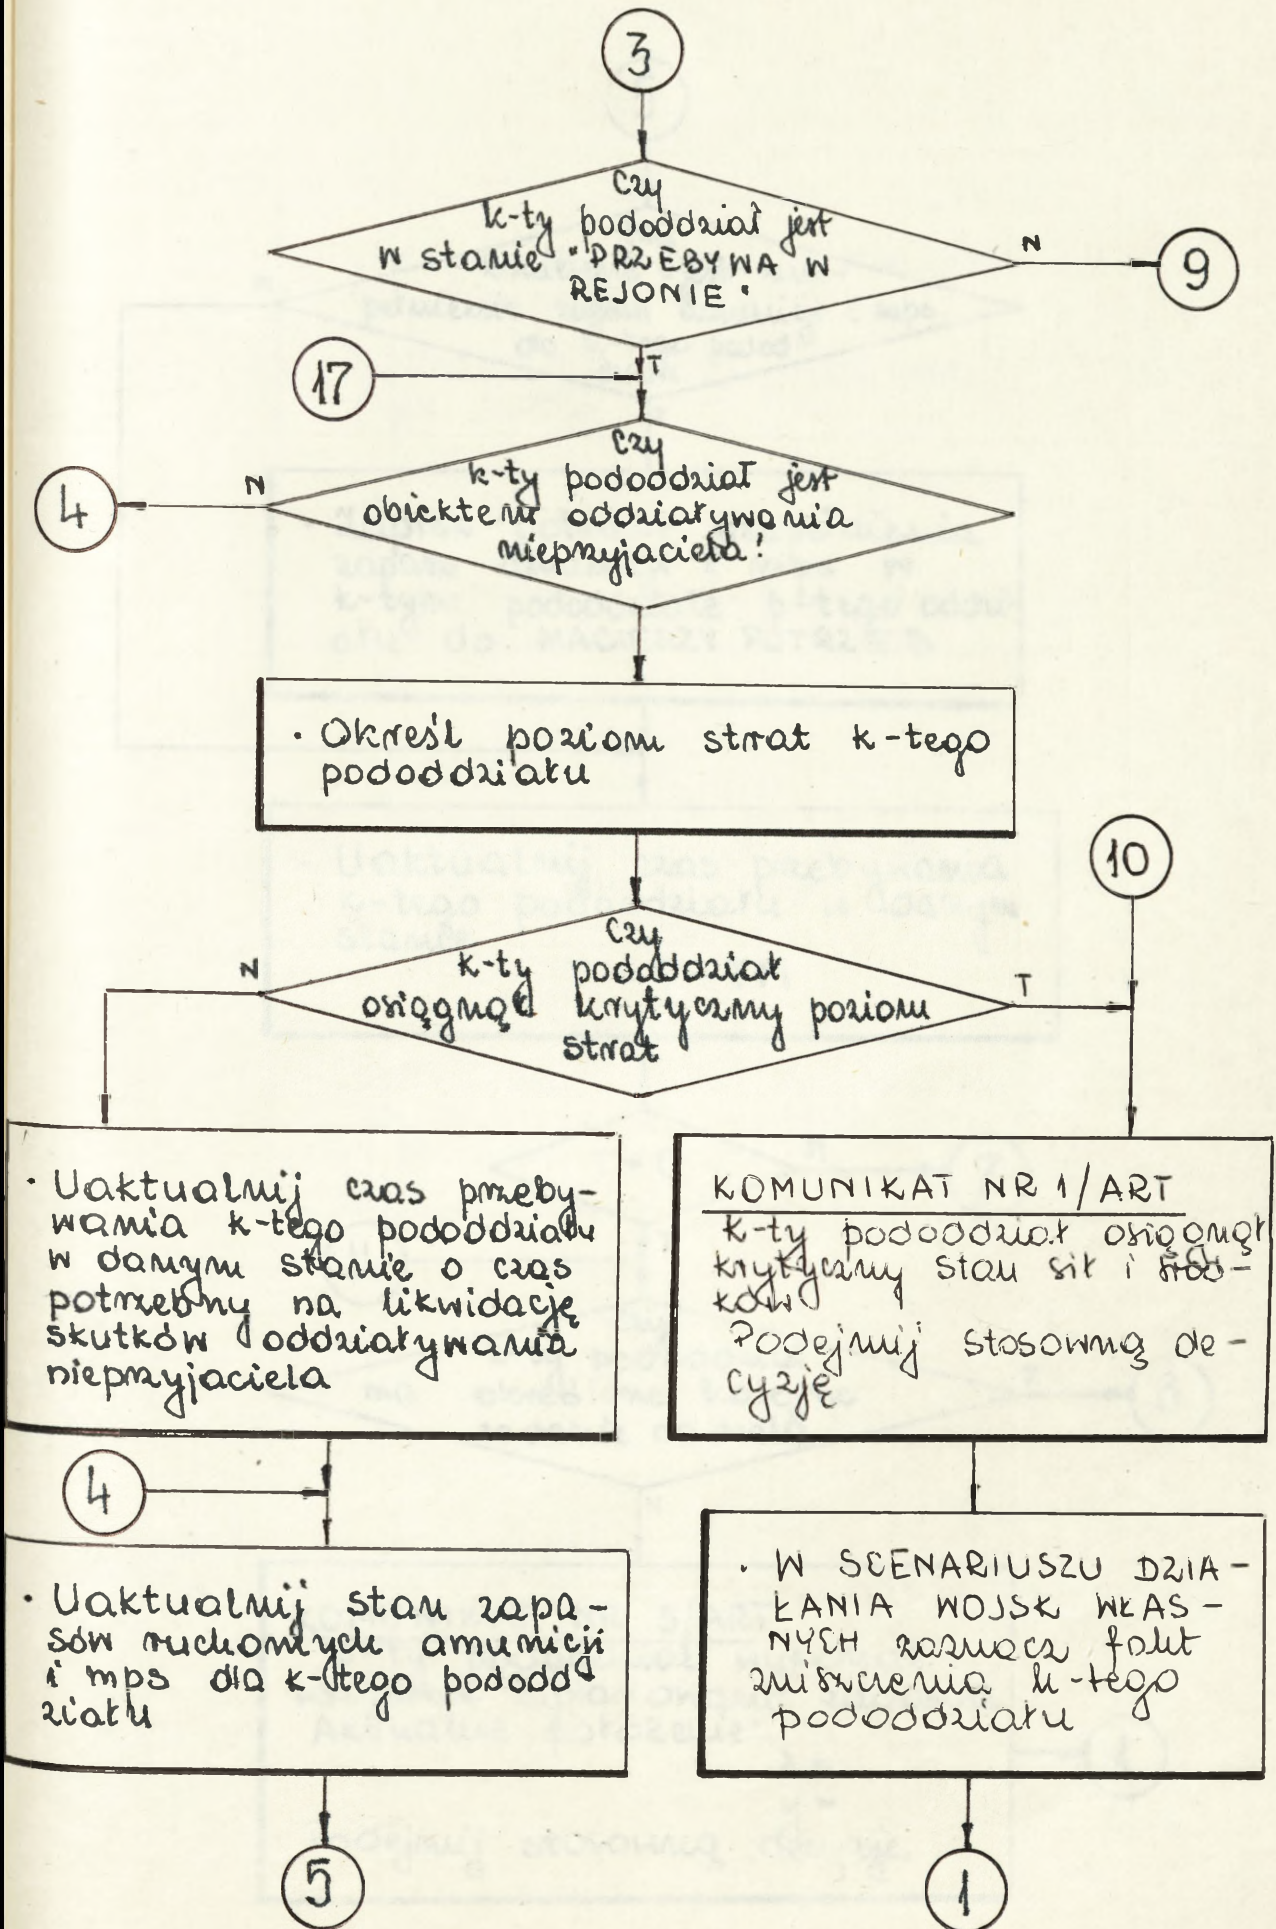 3
Czy
k-ty pododdział jest
w stanie "PRZEBYWA W
REJONIE"
N
9
T
17
Czy
k-ty pododdział jest
obiektem oddziaływania
nieprzyjaciela!
N
4
· Określ poziom strat k-tego
pododdziału
10
Czy
k-ty pododdział
osiągnął krytyczny poziom
strat
N
T
· Uaktualnij czas przeby-
wania k-tego pododdziału
w danym stanie o czas
potrzebny na likwidację
skutków oddziaływania
nieprzyjaciela
KOMUNIKAT NR 1/ART
k-ty pododdział osiągnął
krytyczny stan sił i środ-
ków
Podejmij stosowną de-
cyzję
4
· Uaktualnij stan zapa-
sów ruchomych amunicji
i mps dla k-tego pododd
ziału
· W SCENARIUSZU DZIA-
ŁANIA WOJSK WŁAS-
NYCH zaznacz fakt
zniszczenia k-tego
pododdziału
5
1